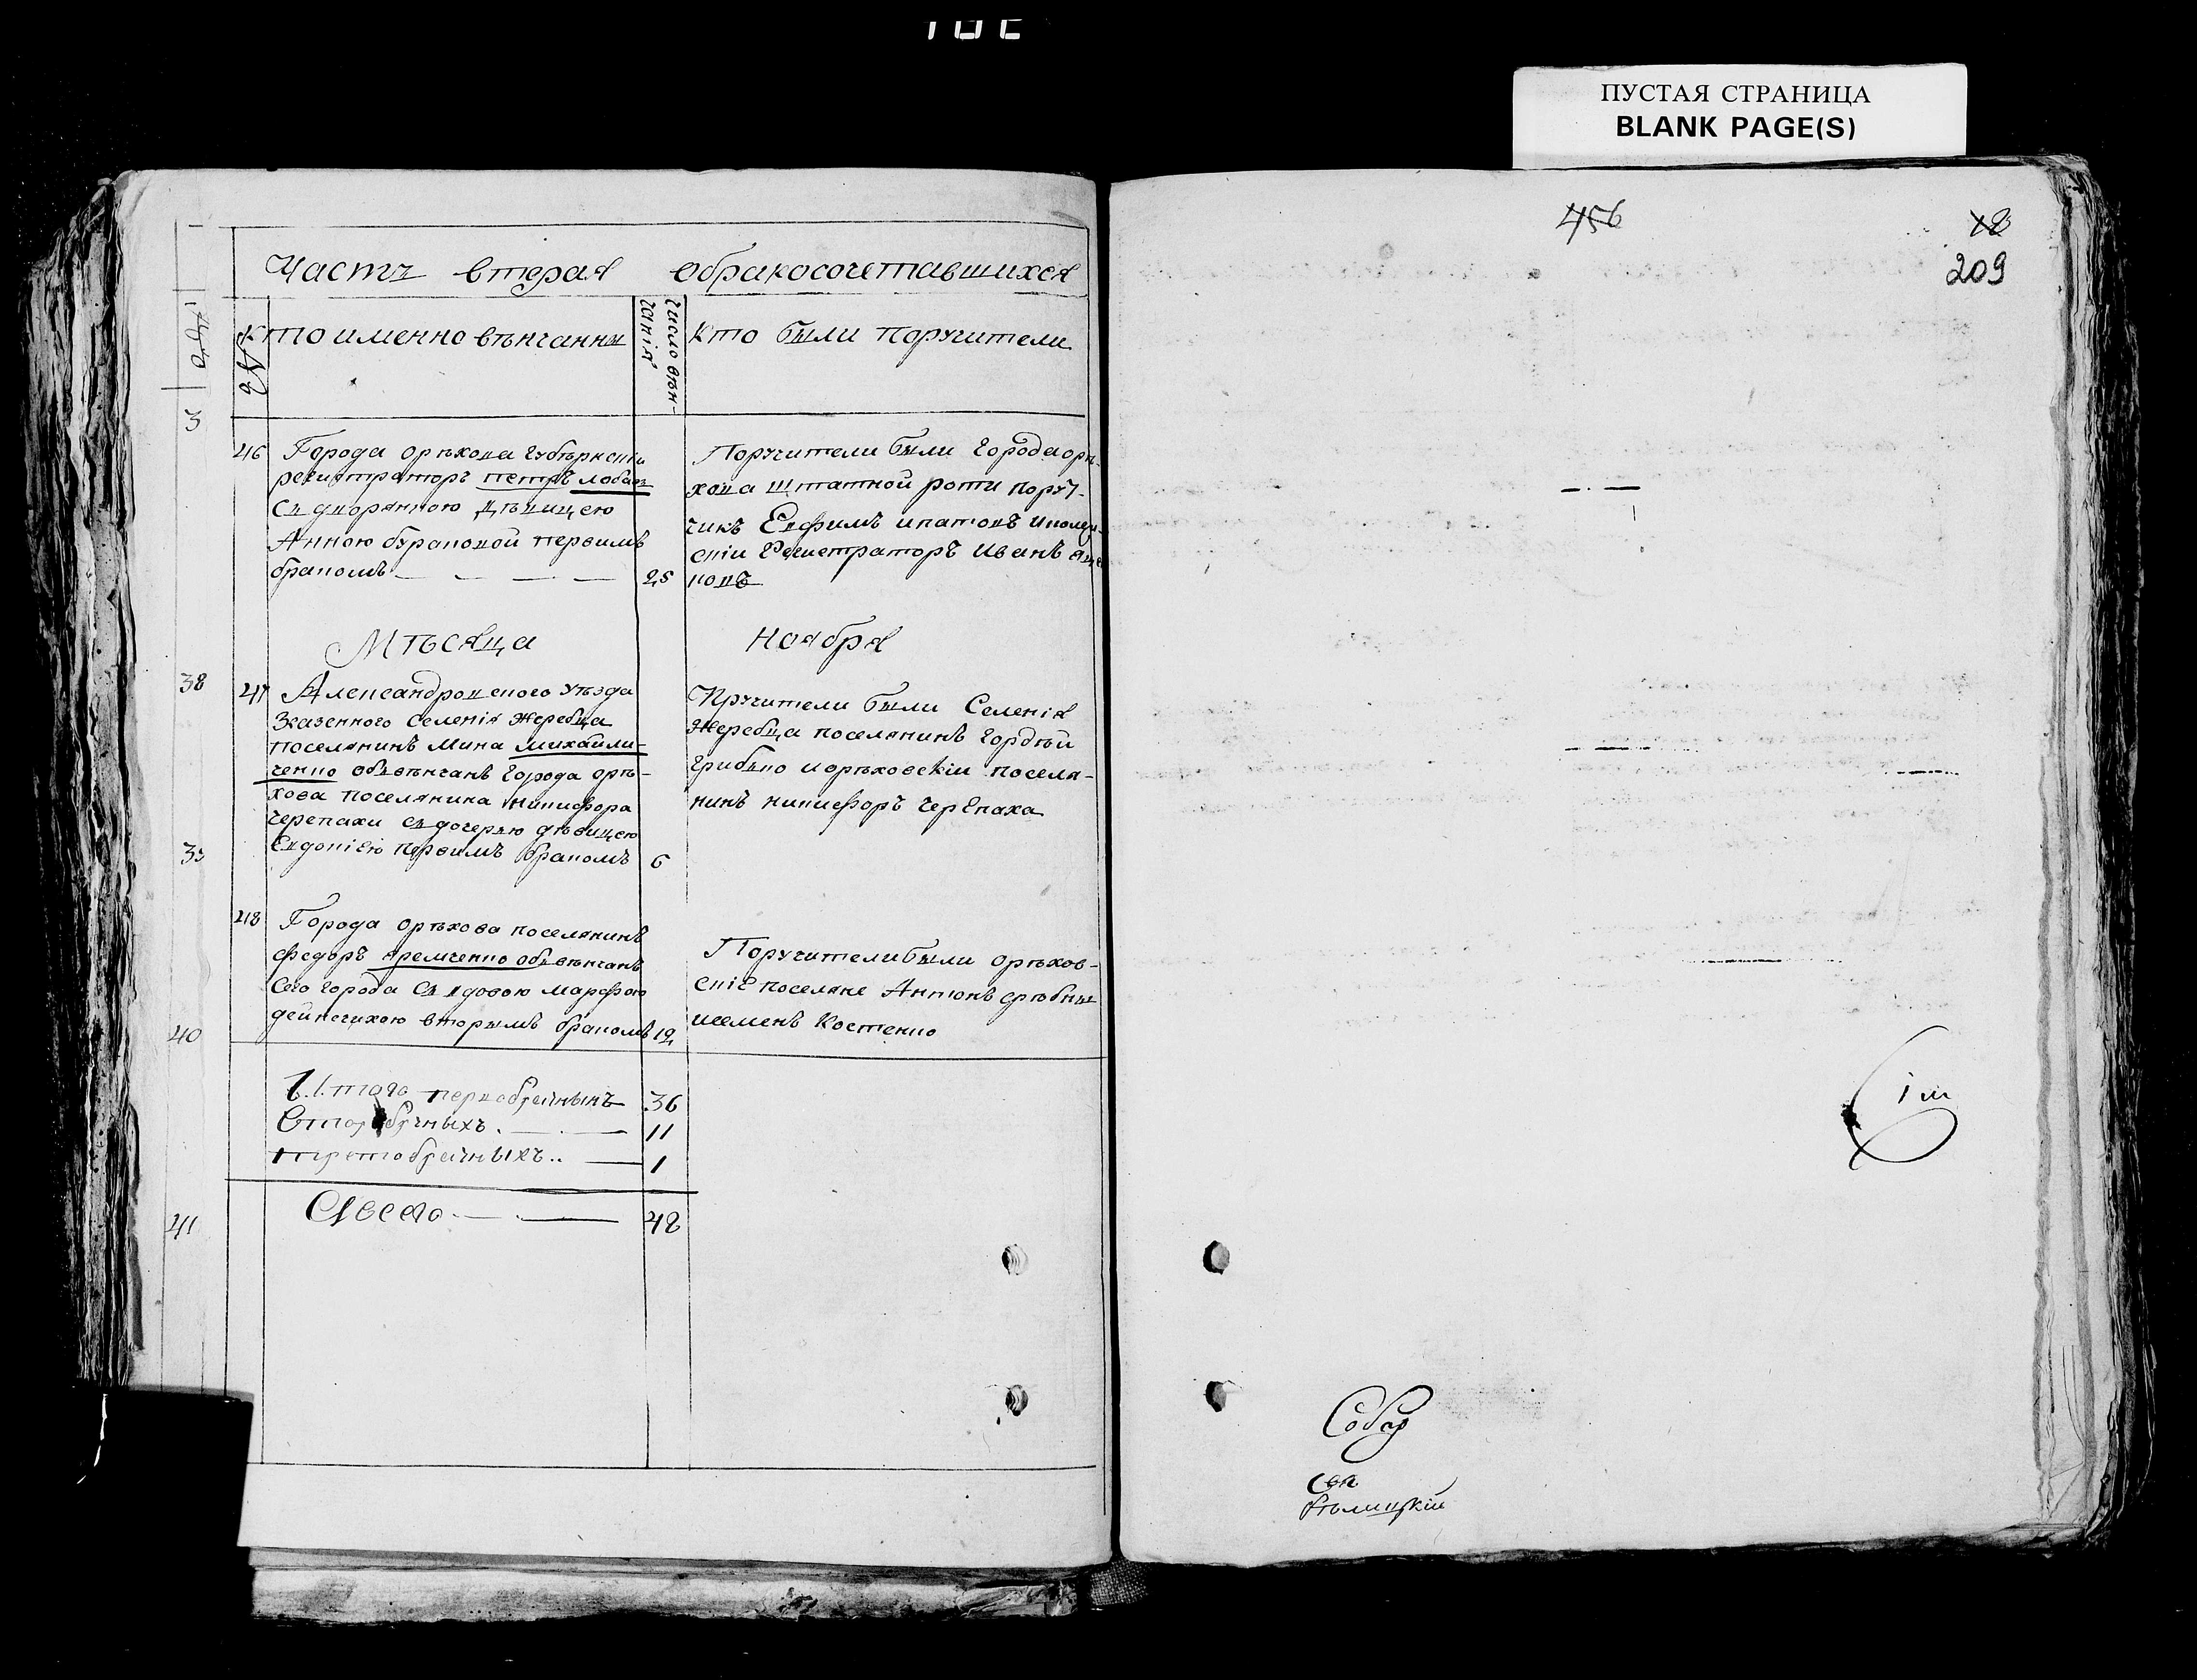 ПУСТАЯ СТРАНИЦА
BLANK PAGE(S)
Часть вторая обракосочетавшихся
№
Кто именно вѣнчанны
Число вѣн-
чанія
Кто были поручители
3
46 Города орѣхова губернски
регистраторъ петръ
Съ дворянною дѣвицею
Анною бураковой первимъ
бракомъ 25
Поручители были Города орѣ-
хова штатной роти поруч-
чикъ Евфимъ ипатовъ
Регистраторъ Иванъ
ковъ
Мѣсяца Ноября
38
47 Александровского уѣзда
Зказенного селенія жеребца
поселянинъ Мина михайли-
ченко обвѣнчанъ Города орѣ-
хова поселянина никифора
черепахи съ дочерью дѣвицею
Евдокіею первимъ бракомъ 6
Пручители были Селенія
Жеребца поселянинъ Гордѣй
грибъко иорѣховскіи поселя-
нинъ никифоръ черепаха
48 Города орѣхова поселянинъ
федоръ яремченко обвѣнчанъ
Сего города Съ вдовою марфою
дейнечихою вторымъ бракомъ 19
Поручители были орѣхов-
скіе поселяне Антонъ срѣбны
исеменъ Костенко
40
Итого первобрачныхъ 36
Второбрачныхъ 11
третобрачныхъ 1
Всего 48
41
456
18
209
Собор
свя
Бѣлицкій